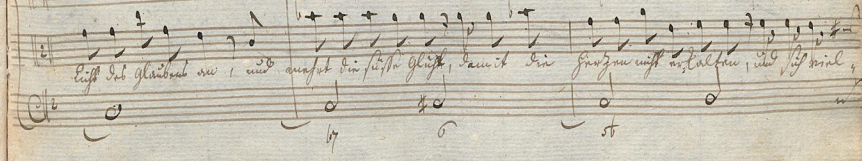 Licht des Glaubens an, und mehrt die süsse Gluht, damit die Hertzen nicht er-kalten, und sich viel-
b7 6 5b